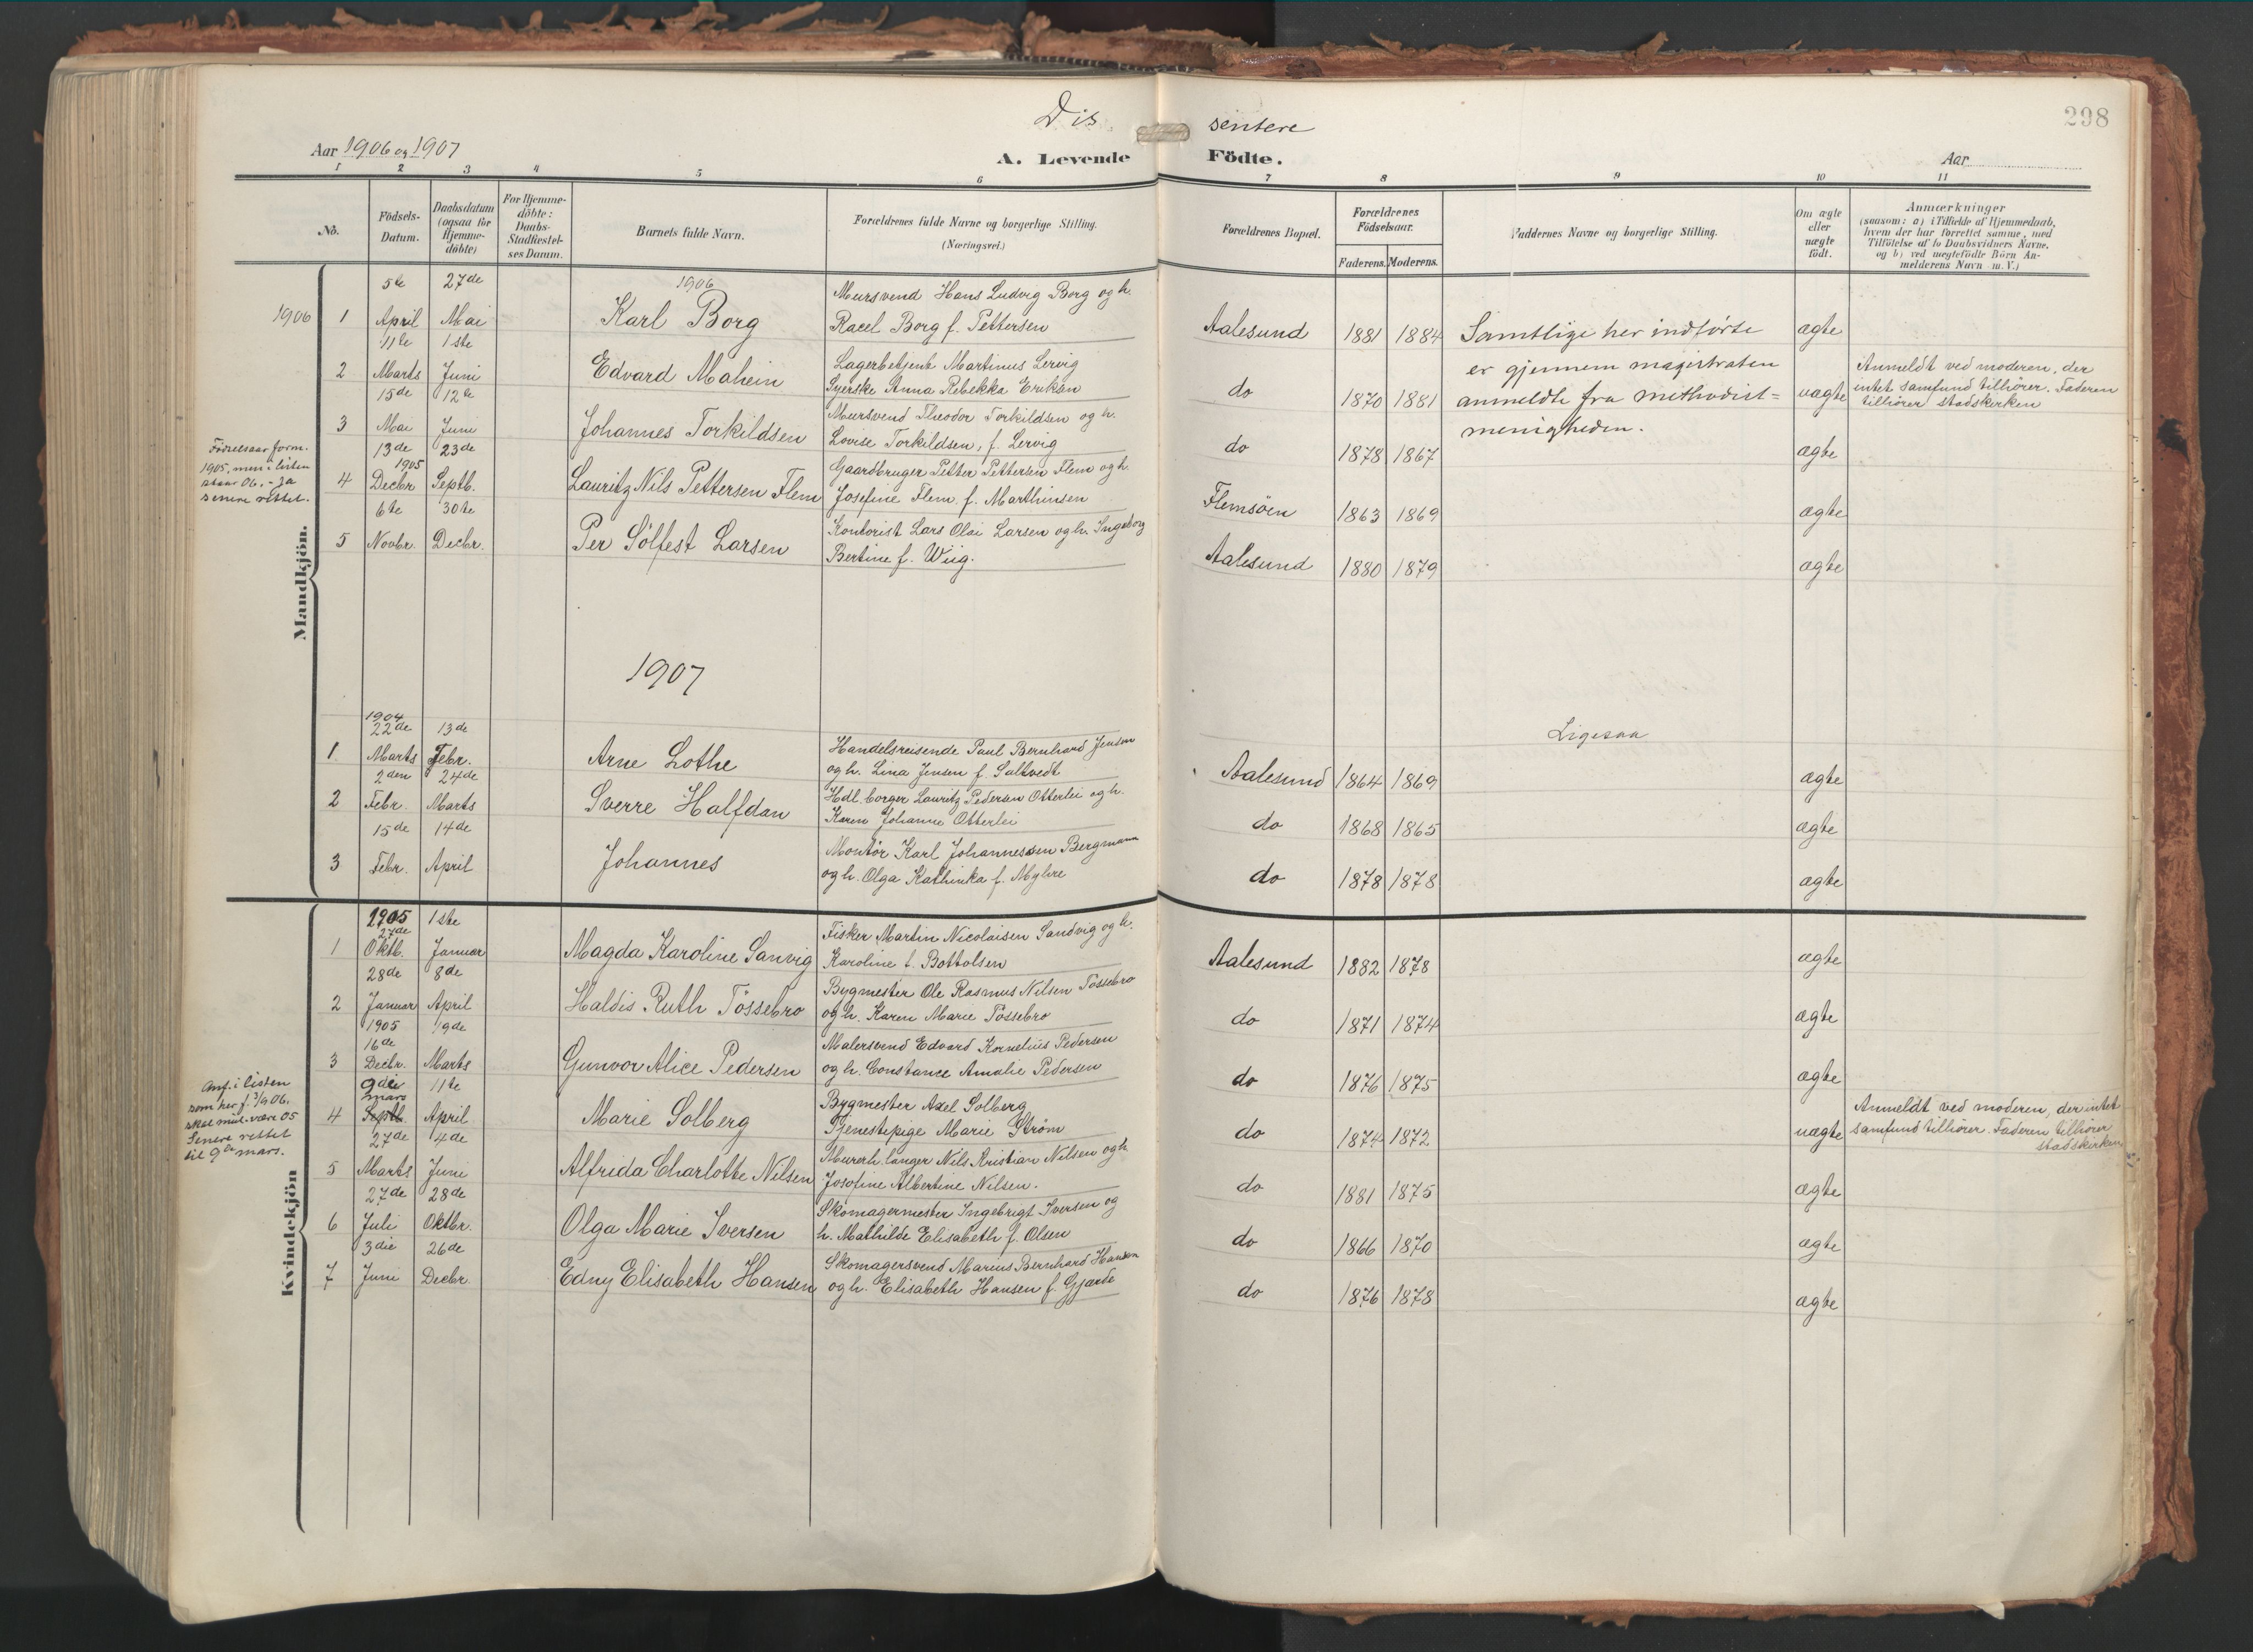 Dis sentere
298
Aar 1906 og 1907
A. Levende Födte.
Aar
1 2 3 4 5 6 7 8 9 10 11
No.
Födsels-Datum.
Daabsdatum (ogsaa for Hjemme-döbte)
For Hjemme-döbte: Daabs-Stadfæstel-ses Datum.
Barnets fulde Navn.
Forældrenes fulde Navne og borgerlige Stilling. (Næringsvei.)
Forældrenes Bopæl.
Forældrenes Födselsaar.
Faderens. Moderens.
Faddernes Navne og borgerlige Stilling.
Om ægte eller uægte födt.
Anmærkninger
(saasom: a) i Tilfælde af Hjemmedaab, hvem der har forrettet samme, med Tilföielse af to Daabsvidners Navne, og b) ved uægtefödte Börn An-melderens Navn m. V.)
Mandkjön.
1906
1906
1 5te April 27de Mai Karl Borg Mursvend Hans Ludvig Borg og h. Racel Borg f. Pettersen Aalesund 1881 1884 ægte
Samtlige her indførte er gjennem magistraten anmeldte fra methodist=menigheden.
2 11te Marts 1ste Juni Edvard Mahein Lagerbetjent Martinus Lervig Syerske Anna Rebekka Eriksen do 1870 1881 uægte Anmeldt ved moderen, der intet samfund tilhører. Faderen tilhører stadskirken
3 15de Mai 12te Juni Johannes Torkildsen Mursvend Theodor Torkildsen og h. Lovise Torkildsen, f. Lervig do 1878 1867 ægte
Födselsaar form. 1905, men i listen staar 06. - ja senere rettet.
4 13de 1905 Decbr 23de Septb. Lauritz Nils Pettersen Flem Gaardbruger Petter Pettersen Flem og h. Josefine Flem f. Marthinsen Flemsöen 1863 1869 ægte
5 6te Novbr. 30te Decbr. Per Sölfest Larsen Kontorist Lars Olai Larsen og h. Ingeborg Bertine f. Wiig. Aalesund 1880 1879 ægte
1907
1 1904 22de Marts 13de Febr. Arne Lothe Handelsreisende Paul Bernhard Jensen og h. Lina Jensen f. Saltvedt Aalesund 1864 1869 Ligesaa ægte
2 2den Febr. 24de Marts Sverre Halfdan Hdl. borger Lauritz Pedersen Otterlei og h. Karen Johanne Otterlei do 1868 1865 ægte
3 15de Febr. 14de April Johannes Montör Karl Johannessen Bergmann og h. Olga Kathinka f. Myhre do 1878 1878 ægte
Kvindekjön
1 1905 27de Oktb. 1ste Januar Magda Karoline Sanvig Fisker Martin Nicolaisen Sandvig og h. Karoline f. Bottolsen Aalesund 1882 1878 ægte
2 28de Januar 8de April Haldis Ruth Tössebro Bygmester Ole Rasmus Nilsen Tössebro og h. Karen Marie Tössebro do 1871 1874 ægte
3 1905 16de Decbr. 19de Marts Gunvor Alice Pedersen Malersvend Edvard Kornelius Pedersen og h. Constance Amalie Pedersen do 1876 1875 ægte
Anf. i listen som her f. 3/9 06. skal mul. være 05 Senere rettet til 9de mars.
4 9de mars Septb. 11te April Marie Solberg Bygmester Axel Solberg Tjenestepige Marie Ström do 1874 1872 uægte Anmeldt ved moderen, der intet samfund tilhører. Faderen tilhører stadskirken
5 27de Marts 4de Juni Alfrida Charlotte Nilsen Murerh. langer Nils Kristian Nilsen og h. Josefine Albertine Nilsen. do 1881 1875 ægte
6 27de Juli 28de Oktbr. Olga Marie Iversen Skomagermester Ingebrigt Iversen og h. Mathilde Elisabeth f. Olsen do 1866 1870 ægte
7 3die Juni 26de Decbr. Edny Elisabeth Hansen Skomagersvend Marius Bernhard Hansen og h. Elisabeth Hansen f. Gjærde do 1876 1878 ægte